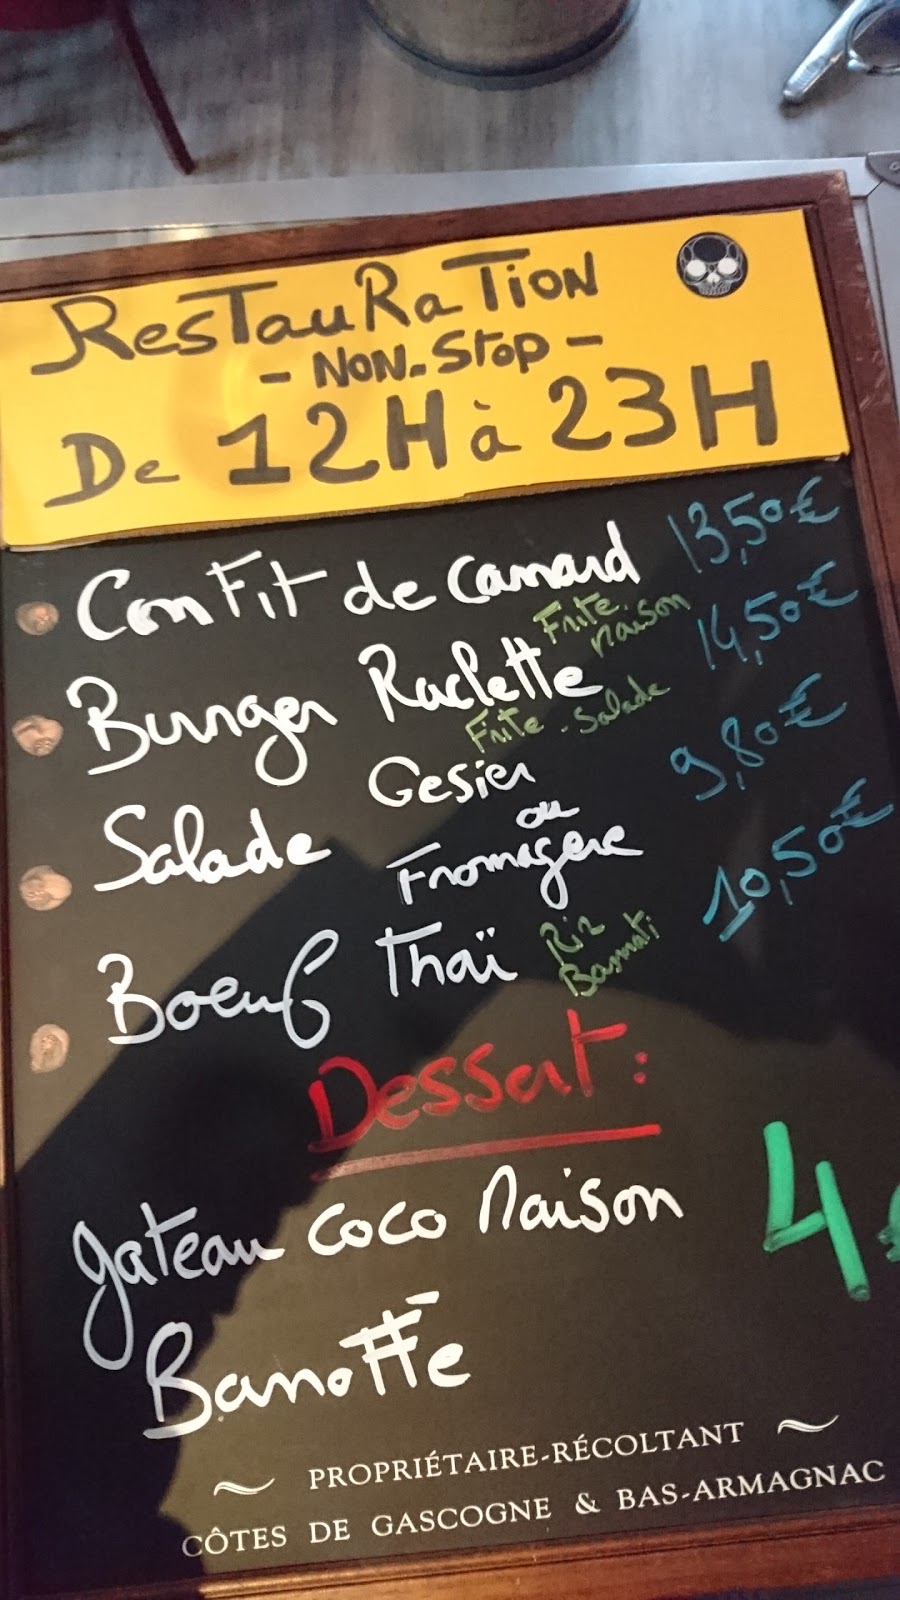 RESTAURATION
- NON-STOP -
De 12H à 23H
Confit de canard 13,50€
Frite maison
Burger Raclette 14,50€
Frite - Salade
Salade Gesier 9,80€
ou
Fromagère
Boeuf Thaï Riz Basmati 10,50€
Dessert:
gateau coco Maison 4€
Banoffe
~ PROPRIÉTAIRE-RÉCOLTANT ~
CÔTES DE GASCOGNE & BAS-ARMAGNAC